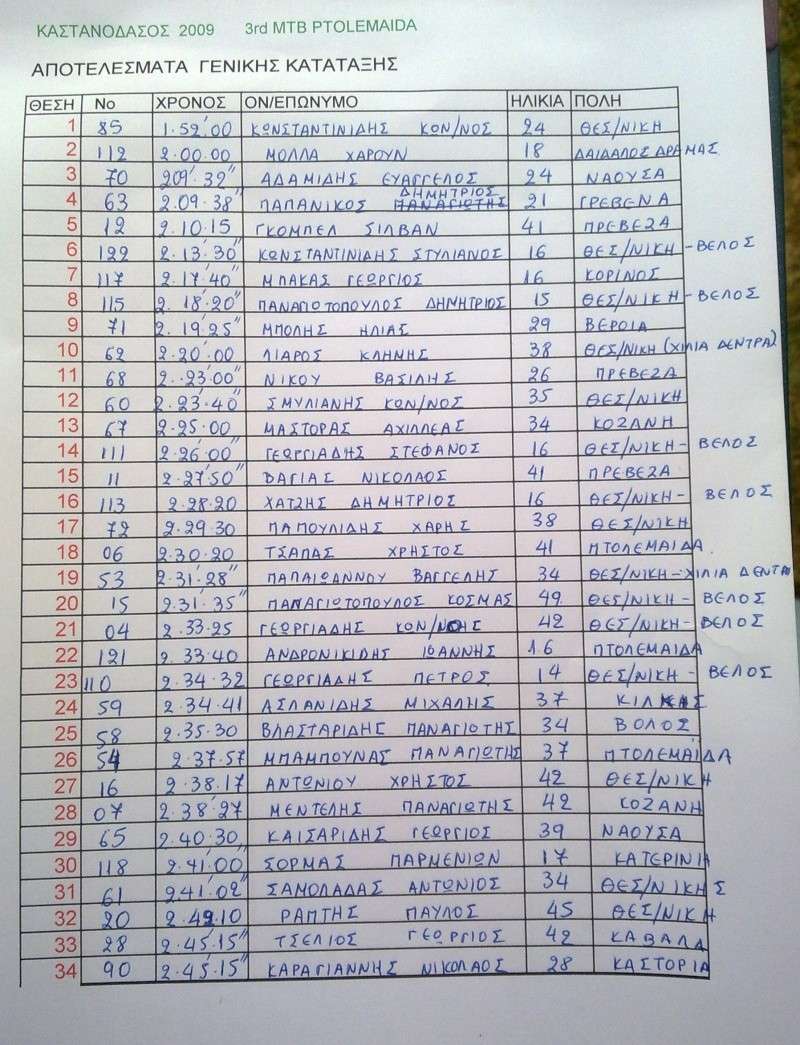 ΚΑΣΤΑΝΟΔΑΣΟΣ 2009 3rd MTB PTOLEMAIDA
ΑΠΟΤΕΛΕΣΜΑΤΑ ΓΕΝΙΚΗΣ ΚΑΤΑΤΑΞΗΣ
ΘΕΣΗ Νο ΧΡΟΝΟΣ ΟΝ/ΕΠΩΝΥΜΟ ΗΛΙΚΙΑ ΠΟΛΗ
1 85 1.52'00 ΚΩΝΣΤΑΝΤΙΝΙΔΗΣ ΚΩΝ/ΝΟΣ 24 ΘΕΣ/ΝΙΚΗ
2 112 2.00.00 ΜΟΛΛΑ ΧΑΡΟΥΝ 18 ΔΑΙΔΑΛΟΣ ΔΡΑΜΑΣ
3 70 209'.32" ΑΔΑΜΙΔΗΣ ΕΥΑΓΓΕΛΟΣ 24 ΝΑΟΥΣΑ
4 63 2.09.38" ΠΑΠΑΝΙΚΟΣ ΔΗΜΗΤΡΙΟΣ 21 ΓΡΕΒΕΝΑ
5 12 2.10.15 ΓΚΟΜΠΕΛ ΣΙΛΒΑΝ 41 ΠΡΕΒΕΖΑ
6 122 2.13'.30" ΚΩΝΣΤΑΝΤΙΝΙΔΗΣ ΣΤΥΛΙΑΝΟΣ 16 ΘΕΣ/ΝΙΚΗ - ΒΕΛΟΣ
7 117 2.17'40" ΜΠΑΚΑΣ ΓΕΩΡΓΙΟΣ 16 ΚΟΡΙΝΟΣ
8 115 2.18'.20" ΠΑΝΑΓΙΟΤΟΠΟΥΛΟΣ ΔΗΜΗΤΡΙΟΣ 15 ΘΕΣ/ΝΙΚΗ - ΒΕΛΟΣ
9 71 2.19'25" ΜΠΟΛΗΣ ΗΛΙΑΣ 29 ΒΕΡΟΙΑ
10 62 2.20'.00 ΛΙΑΡΟΣ ΚΛΗΝΗΣ 38 ΘΕΣ/ΝΙΚΗ (ΧΙΛΙΑ ΔΕΝΤΡΑ)
11 68 2.23'00" ΝΙΚΟΥ ΒΑΣΙΛΗΣ 26 ΠΡΕΒΕΖΑ
12 60 2.23'.40" ΣΜΥΛΙΑΝΗΣ ΚΩΝ/ΝΟΣ 35 ΘΕΣ/ΝΙΚΗ
13 67 2.25.00 ΜΑΣΤΟΡΑΣ ΑΧΙΛΛΕΑΣ 34 ΚΟΖΑΝΗ
14 111 2.26'00" ΓΕΩΡΓΙΑΔΗΣ ΣΤΕΦΑΝΟΣ 16 ΘΕΣ/ΝΙΚΗ - ΒΕΛΟΣ
15 11 2.27'50" ΒΑΓΙΑΣ ΝΙΚΟΛΑΟΣ 41 ΠΡΕΒΕΖΑ
16 113 2.28.20 ΧΑΤΖΗΣ ΔΗΜΗΤΡΙΟΣ 16 ΘΕΣ/ΝΙΚΗ - ΒΕΛΟΣ
17 72 2.29.30 ΠΑΠΟΥΛΙΔΗΣ ΧΑΡΗΣ 38 ΘΕΣ/ΝΙΚΗ
18 06 2.30.20 ΤΣΑΠΑΣ ΧΡΗΣΤΟΣ 41 ΠΤΟΛΕΜΑΙΔΑ
19 53 2.31'.28" ΠΑΠΑΙΩΑΝΝΟΥ ΒΑΓΓΕΛΗΣ 34 ΘΕΣ/ΝΙΚΗ - ΧΙΛΙΑ ΔΕΝΤΡΑ
20 15 2.31'.35" ΠΑΝΑΓΙΩΤΟΠΟΥΛΟΣ ΚΟΣΜΑΣ 49 ΘΕΣ/ΝΙΚΗ - ΒΕΛΟΣ
21 04 2.33.25 ΓΕΩΡΓΙΑΔΗΣ 42 ΘΕΣ/ΝΙΚΗ - ΒΕΛΟΣ
22 121 2.33.40 ΑΝΔΡΟΝΙΚΙΔΗΣ ΙΩΑΝΝΗΣ 16 ΠΤΟΛΕΜΑΙΔΑ
23 110 2.34.32 ΓΕΩΡΓΙΑΔΗΣ ΠΕΤΡΟΣ 14 ΘΕΣ/ΝΙΚΗ - ΒΕΛΟΣ
24 59 2.34.41 ΑΣΛΑΝΙΔΗΣ ΜΙΧΑΛΗΣ 37 ΚΙΛΚΙΣ
25 58 2.35.30 ΒΛΑΣΤΑΡΙΔΗΣ ΠΑΝΑΓΙΩΤΗΣ 34 ΒΟΛΟΣ
26 54 2.37.57 ΜΠΑΜΠΟΥΝΑΣ ΠΑΝΑΓΙΩΤΗΣ 37 ΠΤΟΛΕΜΑΪΔΑ
27 16 2.38.17 ΑΝΤΩΝΙΟΥ ΧΡΗΣΤΟΣ 42 ΘΕΣ/ΝΙΚΗ
28 07 2.38'27 ΜΕΝΤΕΛΗΣ ΠΑΝΑΓΙΩΤΗΣ 42 ΚΟΖΑΝΗ
29 65 2.40.30 ΚΑΙΣΑΡΙΔΗΣ ΓΕΩΡΓΙΟΣ 39 ΝΑΟΥΣΑ
30 118 2.41.00" ΣΟΡΜΑΣ ΠΑΡΜΕΝΙΩΝ 17 ΚΑΤΕΡΙΝΗ
31 61 241.02" ΣΑΜΟΛΑΔΑΣ ΑΝΤΩΝΙΟΣ 34 ΘΕΣ/ΝΙΚΗΣ
32 20 ΡΑΠΤΗΣ ΠΑΥΛΟΣ 45 ΘΕΣ/ΝΙΚΗ
33 28 2.45.15" ΤΣΕΛΙΟΣ ΓΕΩΡΓΙΟΣ 42 ΚΑΒΑΛΑ
34 90 2.45'.15" ΚΑΡΑΓΙΑΝΝΗΣ ΝΙΚΟΛΑΟΣ 28 ΚΑΣΤΟΡΙΑ